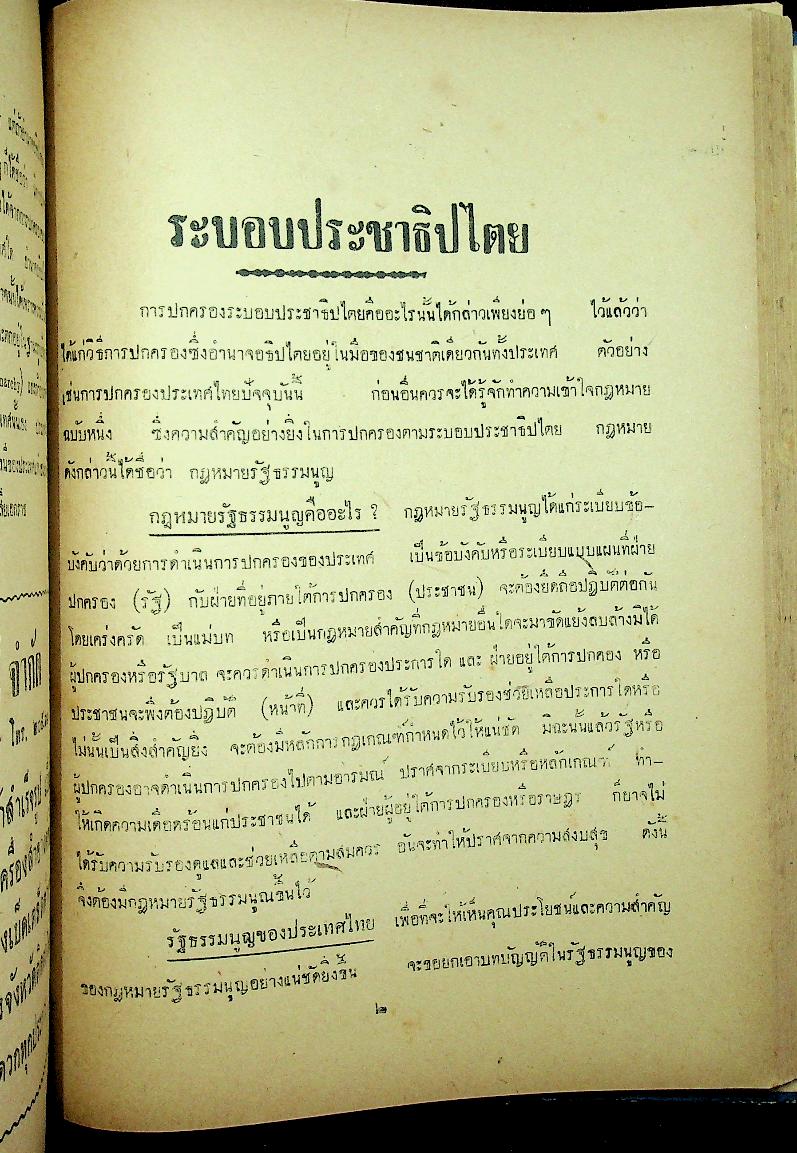 ระบอบประชาธิปไตย
การปกครองระบอบประชาธิปไตยคืออะไรนั้นได้กล่าวเพียงย่อ ๆ ไว้แล้วว่า
ได้แก่วิธีการปกครองซึ่งอำนาจอธิปไตยอยู่ในมือของชนชาติเดียวกันทั้งประเทศ ตัวอย่าง
เช่นการปกครองประเทศไทยปัจจุบันนี้ ก่อนอื่นควรจะได้รู้จักทำความเข้าใจกฎหมาย
ฉบับหนึ่ง ซึ่งความสำคัญอย่างยิ่งในการปกครองตามระบอบประชาธิปไตย กฎหมาย
ดังกล่าวนี้ได้ชื่อว่า กฎหมายรัฐธรรมนูญ
กฎหมายรัฐธรรมนูญคืออะไร ? กฎหมายรัฐธรรมนูญได้แก่ระเบียบข้อ–
บังคับว่าด้วยการดำเนินการปกครองของประเทศ เป็นข้อบังคับหรือระเบียบแบบแผนที่ฝ่าย
ปกครอง (รัฐ) กับฝ่ายที่อยู่ภายใต้การปกครอง (ประชาชน) จะต้องยึดถือปฏิบัติต่อกัน
โดยเคร่งครัด เป็นแม่บท หรือเป็นกฎหมายสำคัญที่กฎหมายอื่นใดจะมาขัดแย้งลบล้างมิได้
ผู้ปกครองหรือรัฐบาล จะควรดำเนินการปกครองประการใด และ ฝ่ายอยู่ใต้การปกคอง หรือ
ประชาชนจะพึงต้องปฏิบัติ (หน้าที่) และควรได้รับความรับรองช่วยเหลือประการใดหรือ
ไม่นั้นเป็นสิ่งสำคัญยิ่ง จะต้องมีหลักการกฎเกณฑ์กำหนดไว้ให้แน่ชัด มิฉะนั้นแล้วรัฐหรือ
ผู้ปกครองอาจดำเนินการปกครองไปตามอารมณ์ ปราศจากระเบียบหรือหลักเกณฑ์ ทำ–
ให้เกิดความเดือดร้อนแก่ประชาชนได้ และฝ่ายผู้อยู่ใต้การปกครองหรือราษฎร ก็อาจไม่
ได้รับความรับรองดูแลและช่วยเหลือตามสมควร อันจะทำให้ปราศจากความสงบสุข ดังนี้
จึงต้องมีกฎหมายรัฐธรรมนูญขึ้นไว้
รัฐธรรมนูญของประเทศไทย เพื่อที่จะให้เห็นคุณประโยชน์และความสำคัญ
ของกฎหมายรัฐธรรมนูญอย่างแน่ชัดยิ่งขึ้น จะขอยกเอาบทบัญญัติในรัฐธรรมนูญของ
๒